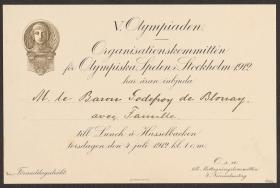 V. Olympiaden.
Organisationskommittén
för Olympiska Spelen i Stockholm 1912
har äran inbjuda
M. le Baron Godefroy de Blonay
avec Famille
till Lunch å Hasselbacken
torsdagen den 4 juli 1912 kl. 1 e.m.
O. s. a.
till Mottagningskommittén